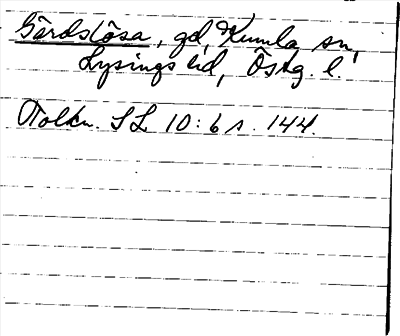 Gärdslösa, gd, Kumla sn,
Lysings hd, Östg. l.
Tolkn. SL 10:6 s. 144.